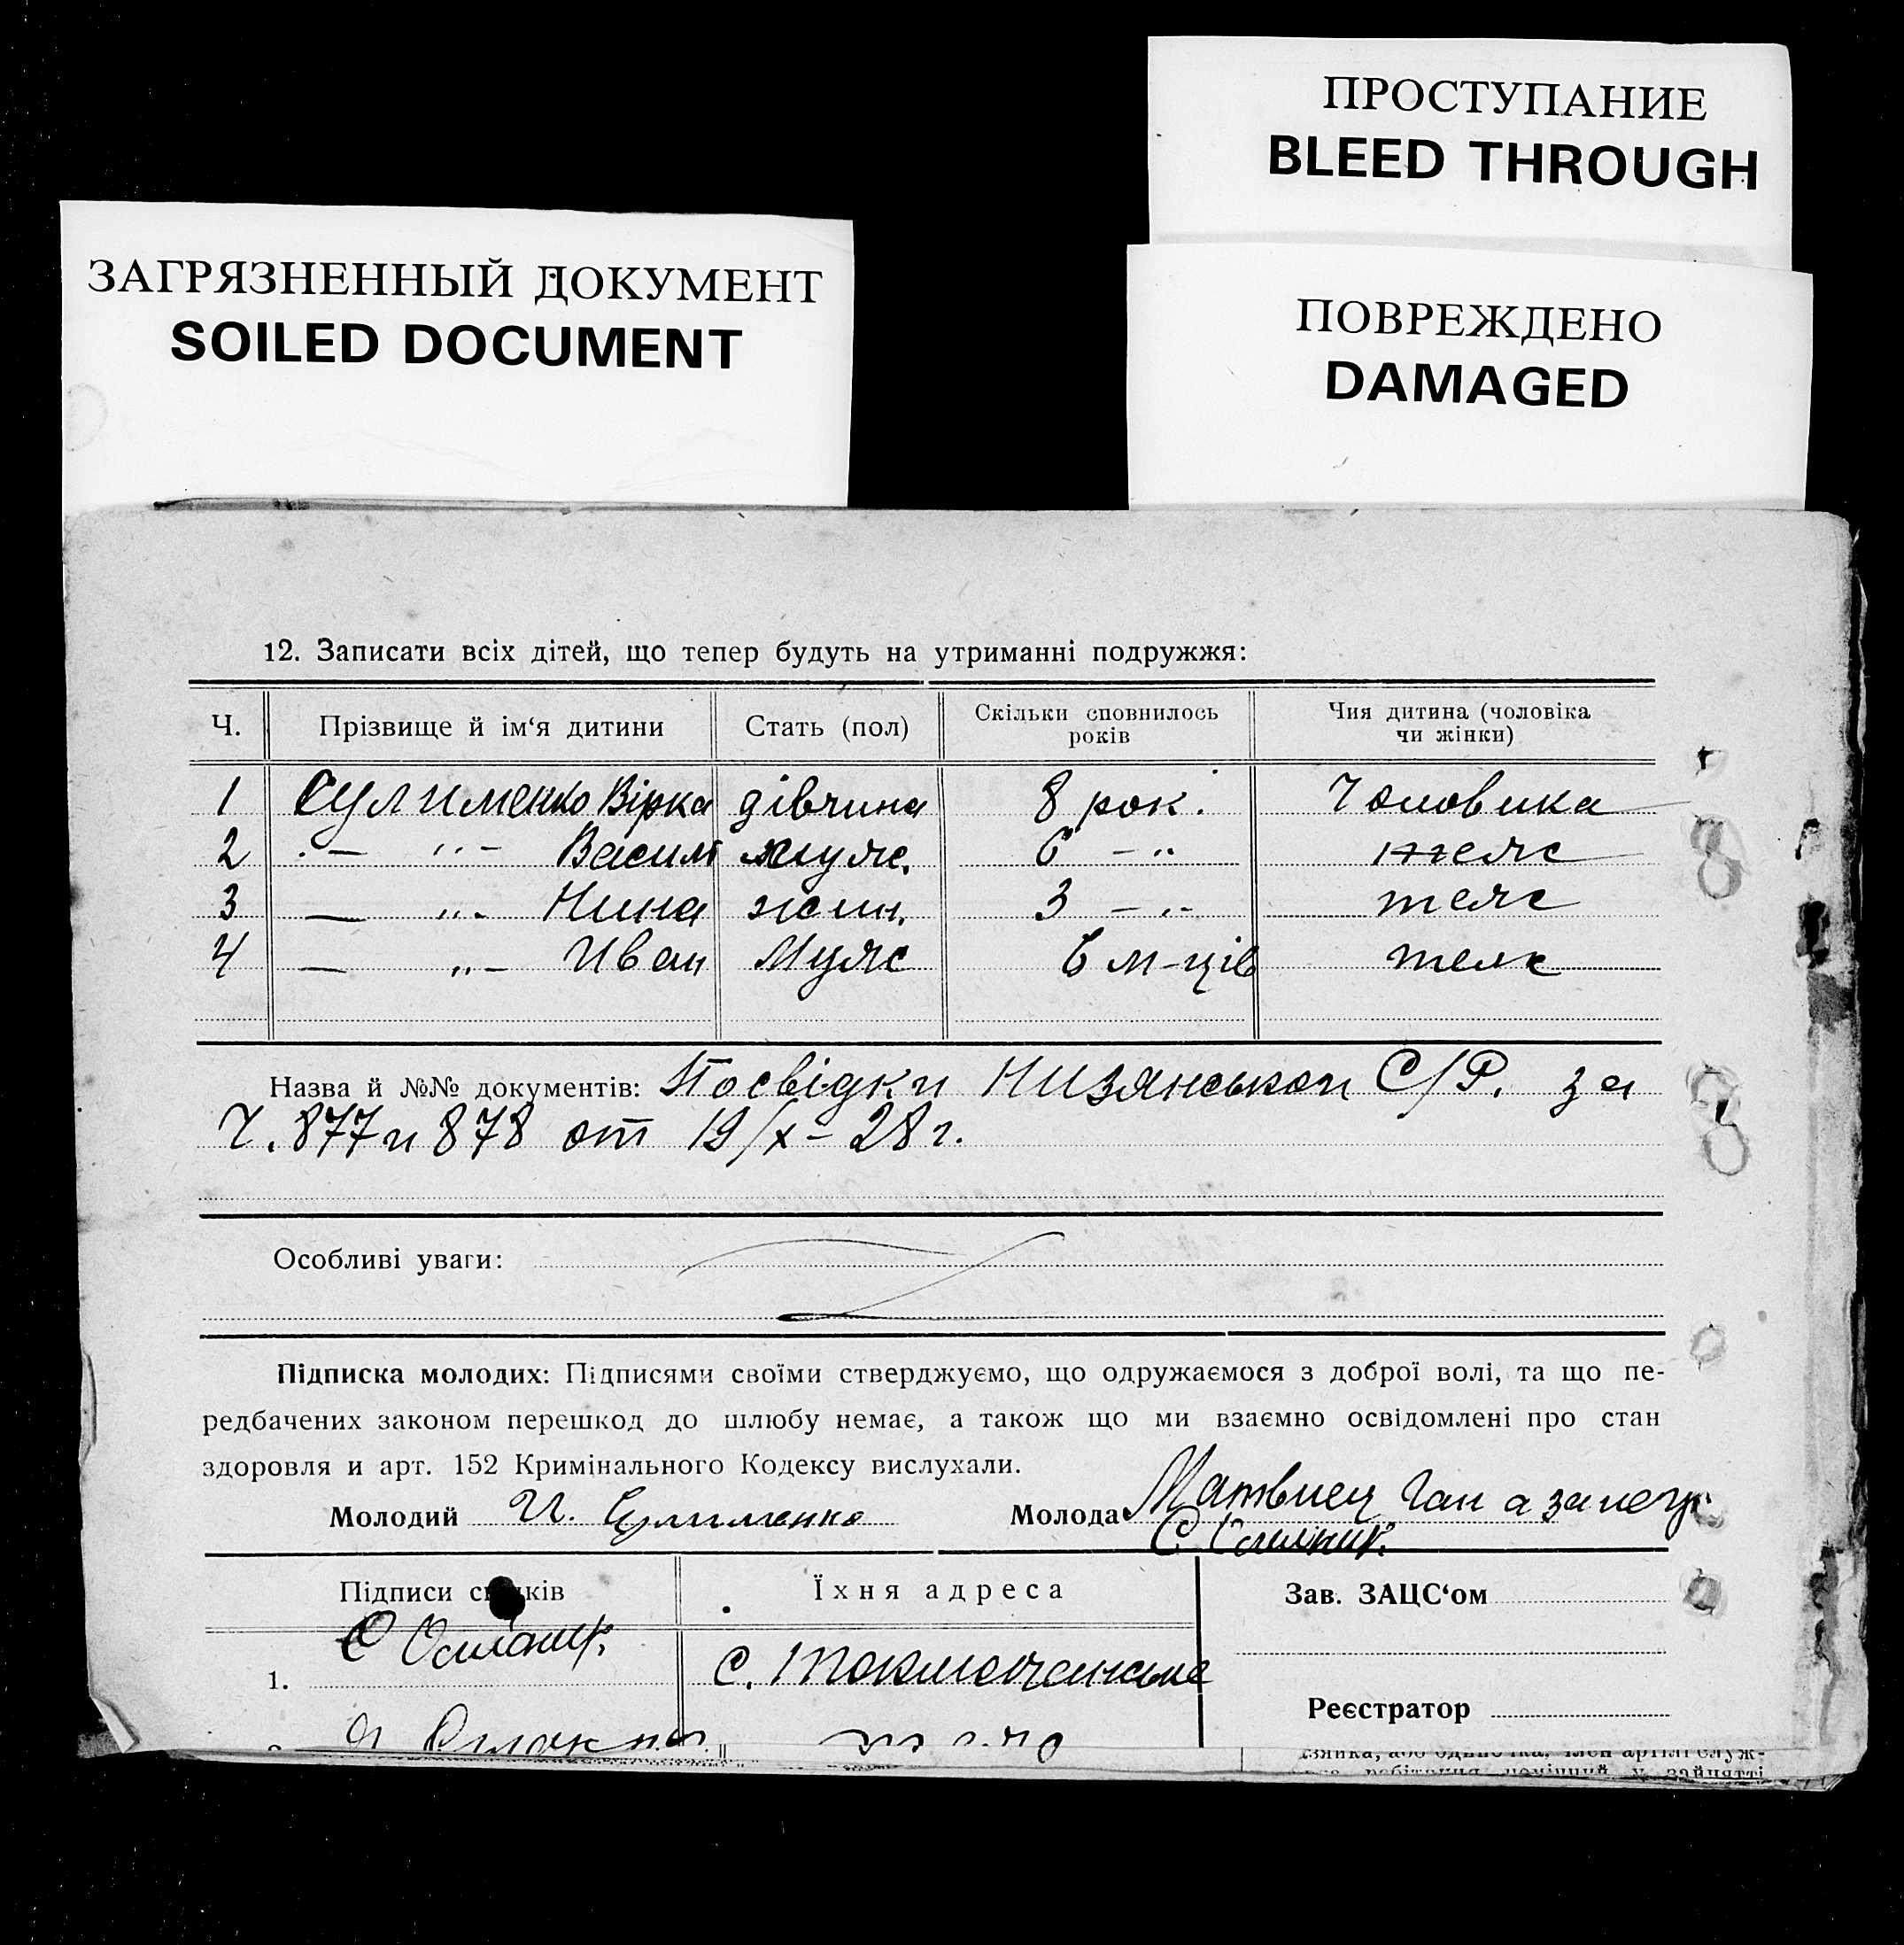 ПРОСТУПАНИЕ
BLEED THROUGH
ЗАГРЯЗНЕННЫЙ ДОКУМЕНТ
SOILED DOCUMENT
ПОВРЕЖДЕНО
DAMAGED
12. Записати всіх дітей, що тепер будуть на утриманні подружжя:
Ч. Прізвище й ім‘я дитини Стать (пол) Скільки сповнилось років Чия дитина (чоловіка чи жінки)
1 Сулименко Вірка дівчина 8 рок. Чоловика
2 — „ — Васил муж. 6 — „ теже
3 — „ — Нина жин. 3 — „ — теже
4 — „ — Иван Муж 6 м-ців теже
Назва й №№ документів: Посвідки Низянской С/Р. за
Ч. 877 и 878 от 19/X – 28 г.
Особливі уваги:
Підписка молодих: Підписями своїми стверджуємо, що одружаємося з доброї волі, та що пе-
редбачених законом перешкод до шлюбу немає, а також що ми взаємно освідомлені про стан
здоровля и арт. 152 Кримінального Кодексу вислухали.
Молодий И. Сулименко Молода Матвиец
Підписи свідків Їхня адреса Зав. ЗАЦС‘ом
1. С.
Реєстратор